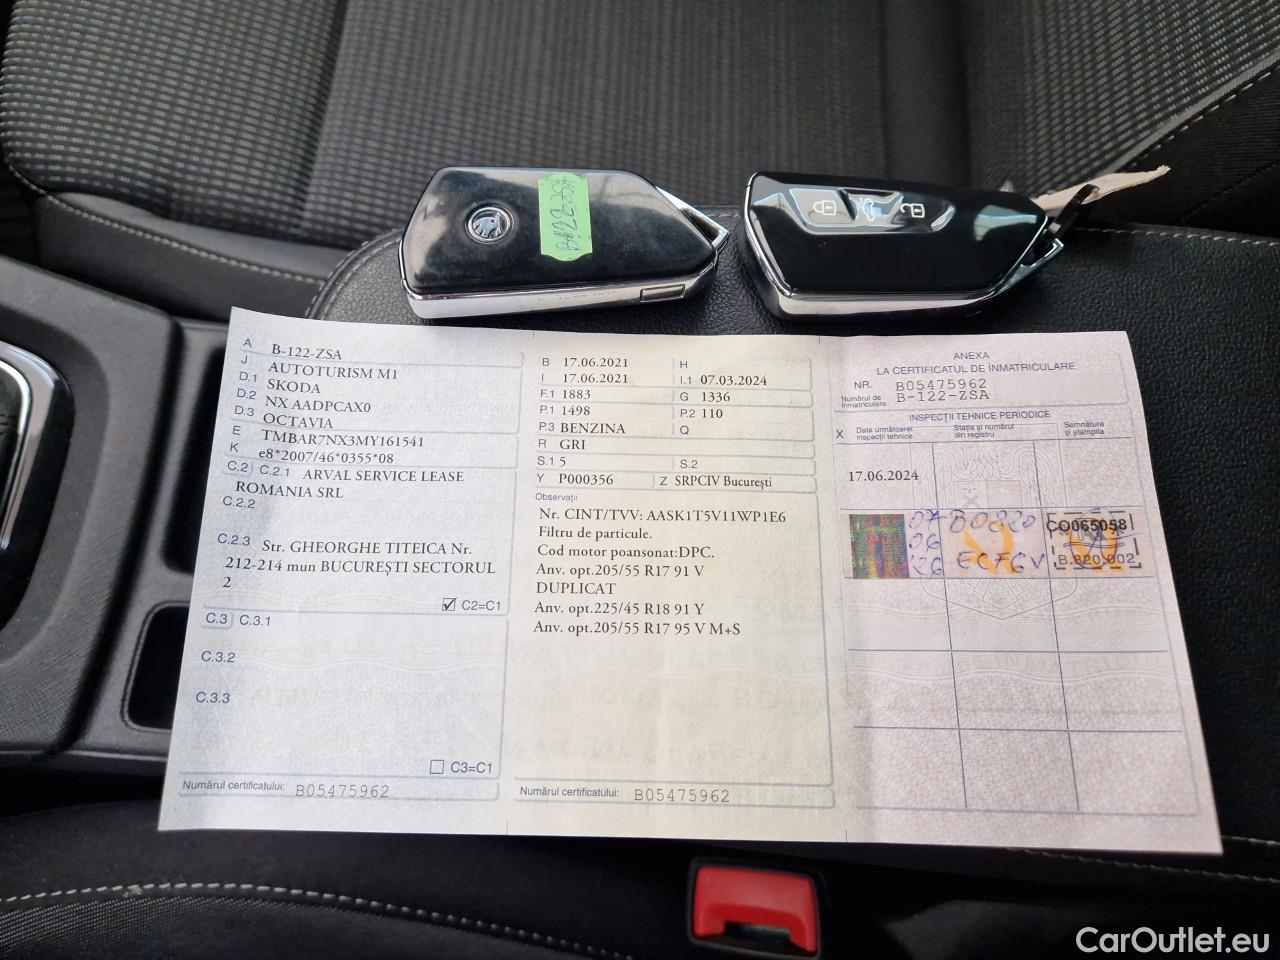 B-122-ZSA
A B-122-ZSA
J AUTOTURISM M1
D.1 SKODA
D.2 NX AADPCAX0
D.3 OCTAVIA
E TMBAR7NX3MY161541
K e8*2007/46*0355*08
C.2 C.2.1 ARVAL SERVICE LEASE
ROMANIA SRL
C.2.2
C.2.3 Str. GHEORGHE TITEICA Nr.
212-214 mun BUCUREȘTI SECTORUL
2
C2=C1
C.3 C.3.1
C.3.2
C.3.3
C3=C1
Numărul certificatului: B05475962
B 17.06.2021 H
I 17.06.2021 I.1 07.03.2024
F.1 1883 G 1336
P.1 1498 P.2 110
P.3 BENZINA Q
R GRI
S.1 5 S.2
Y P000356 Z SRPCIV București
Observații
Nr. CINT/TVV: AASK1T5V11WP1E6
Filtru de particule.
Cod motor poansonat:DPC.
Anv. opt.205/55 R17 91 V
DUPLICAT
Anv. opt.225/45 R18 91 Y
Anv. opt.205/55 R17 95 V M+S
Numărul certificatului: B05475962
ANEXA
LA CERTIFICATUL DE ÎNMATRICULARE
NR. B05475962
Numărul de înmatriculare B-122-ZSA
INSPECȚII TEHNICE PERIODICE
X Data următoarei inspecții tehnice Stația și numărul din registru Semnătura și ștampila
17.06.2024
07 B0820 CO065058
06
'26 B.820.002
CarOutlet.eu